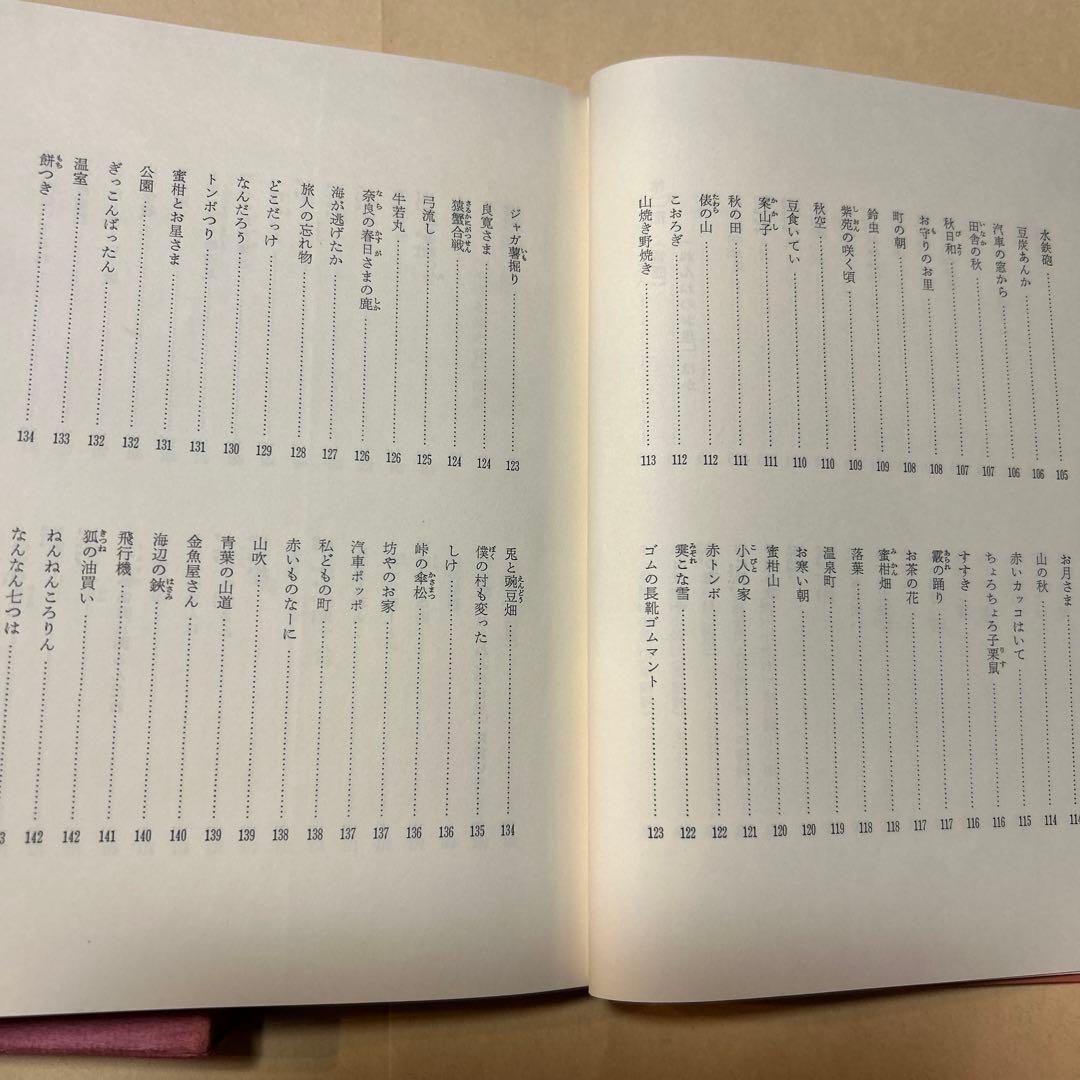 水鉄砲……105
豆炭あんか……106
汽車の窓から……106
田舎の秋……107
秋日和……107
お守りのお里……108
町の朝……108
鈴虫……109
紫苑の咲く頃……109
秋空……110
豆食いてい……110
案山子……111
秋の田……111
俵の山……112
こおろぎ……112
山焼き野焼き……113
お月さま……114
山の秋……114
赤いカッコはいて……115
ちょろちょろ子栗鼠……116
すすき……116
霰の踊り……117
お茶の花……117
蜜柑畑……118
落葉……118
温泉町……119
お寒い朝……120
蜜柑山……120
小人の家……121
赤トンボ……122
霙こな雪……122
ゴムの長靴ゴムマント……123
ジャガ薯掘り……123
良寛さま……124
猿蟹合戦……124
弓流し……125
牛若丸……126
奈良の春日さまの鹿……126
海が逃げたか……127
旅人の忘れ物……128
どこだっけ……129
なんだろう……130
トンボつり……131
蜜柑とお星さま……131
公園……132
ぎっこんばったん……132
温室……133
餅つき……134
兎と豌豆畑……134
僕の村も変った……135
しけ……136
峠の傘松……136
坊やのお家……137
汽車ポッポ……137
私どもの町……138
赤いものなーに……138
山吹……139
青葉の山道……139
金魚屋さん……140
海辺の鋏……140
飛行機……141
狐の油買い……142
ねんねんころりん……142
なんなん七つは……3